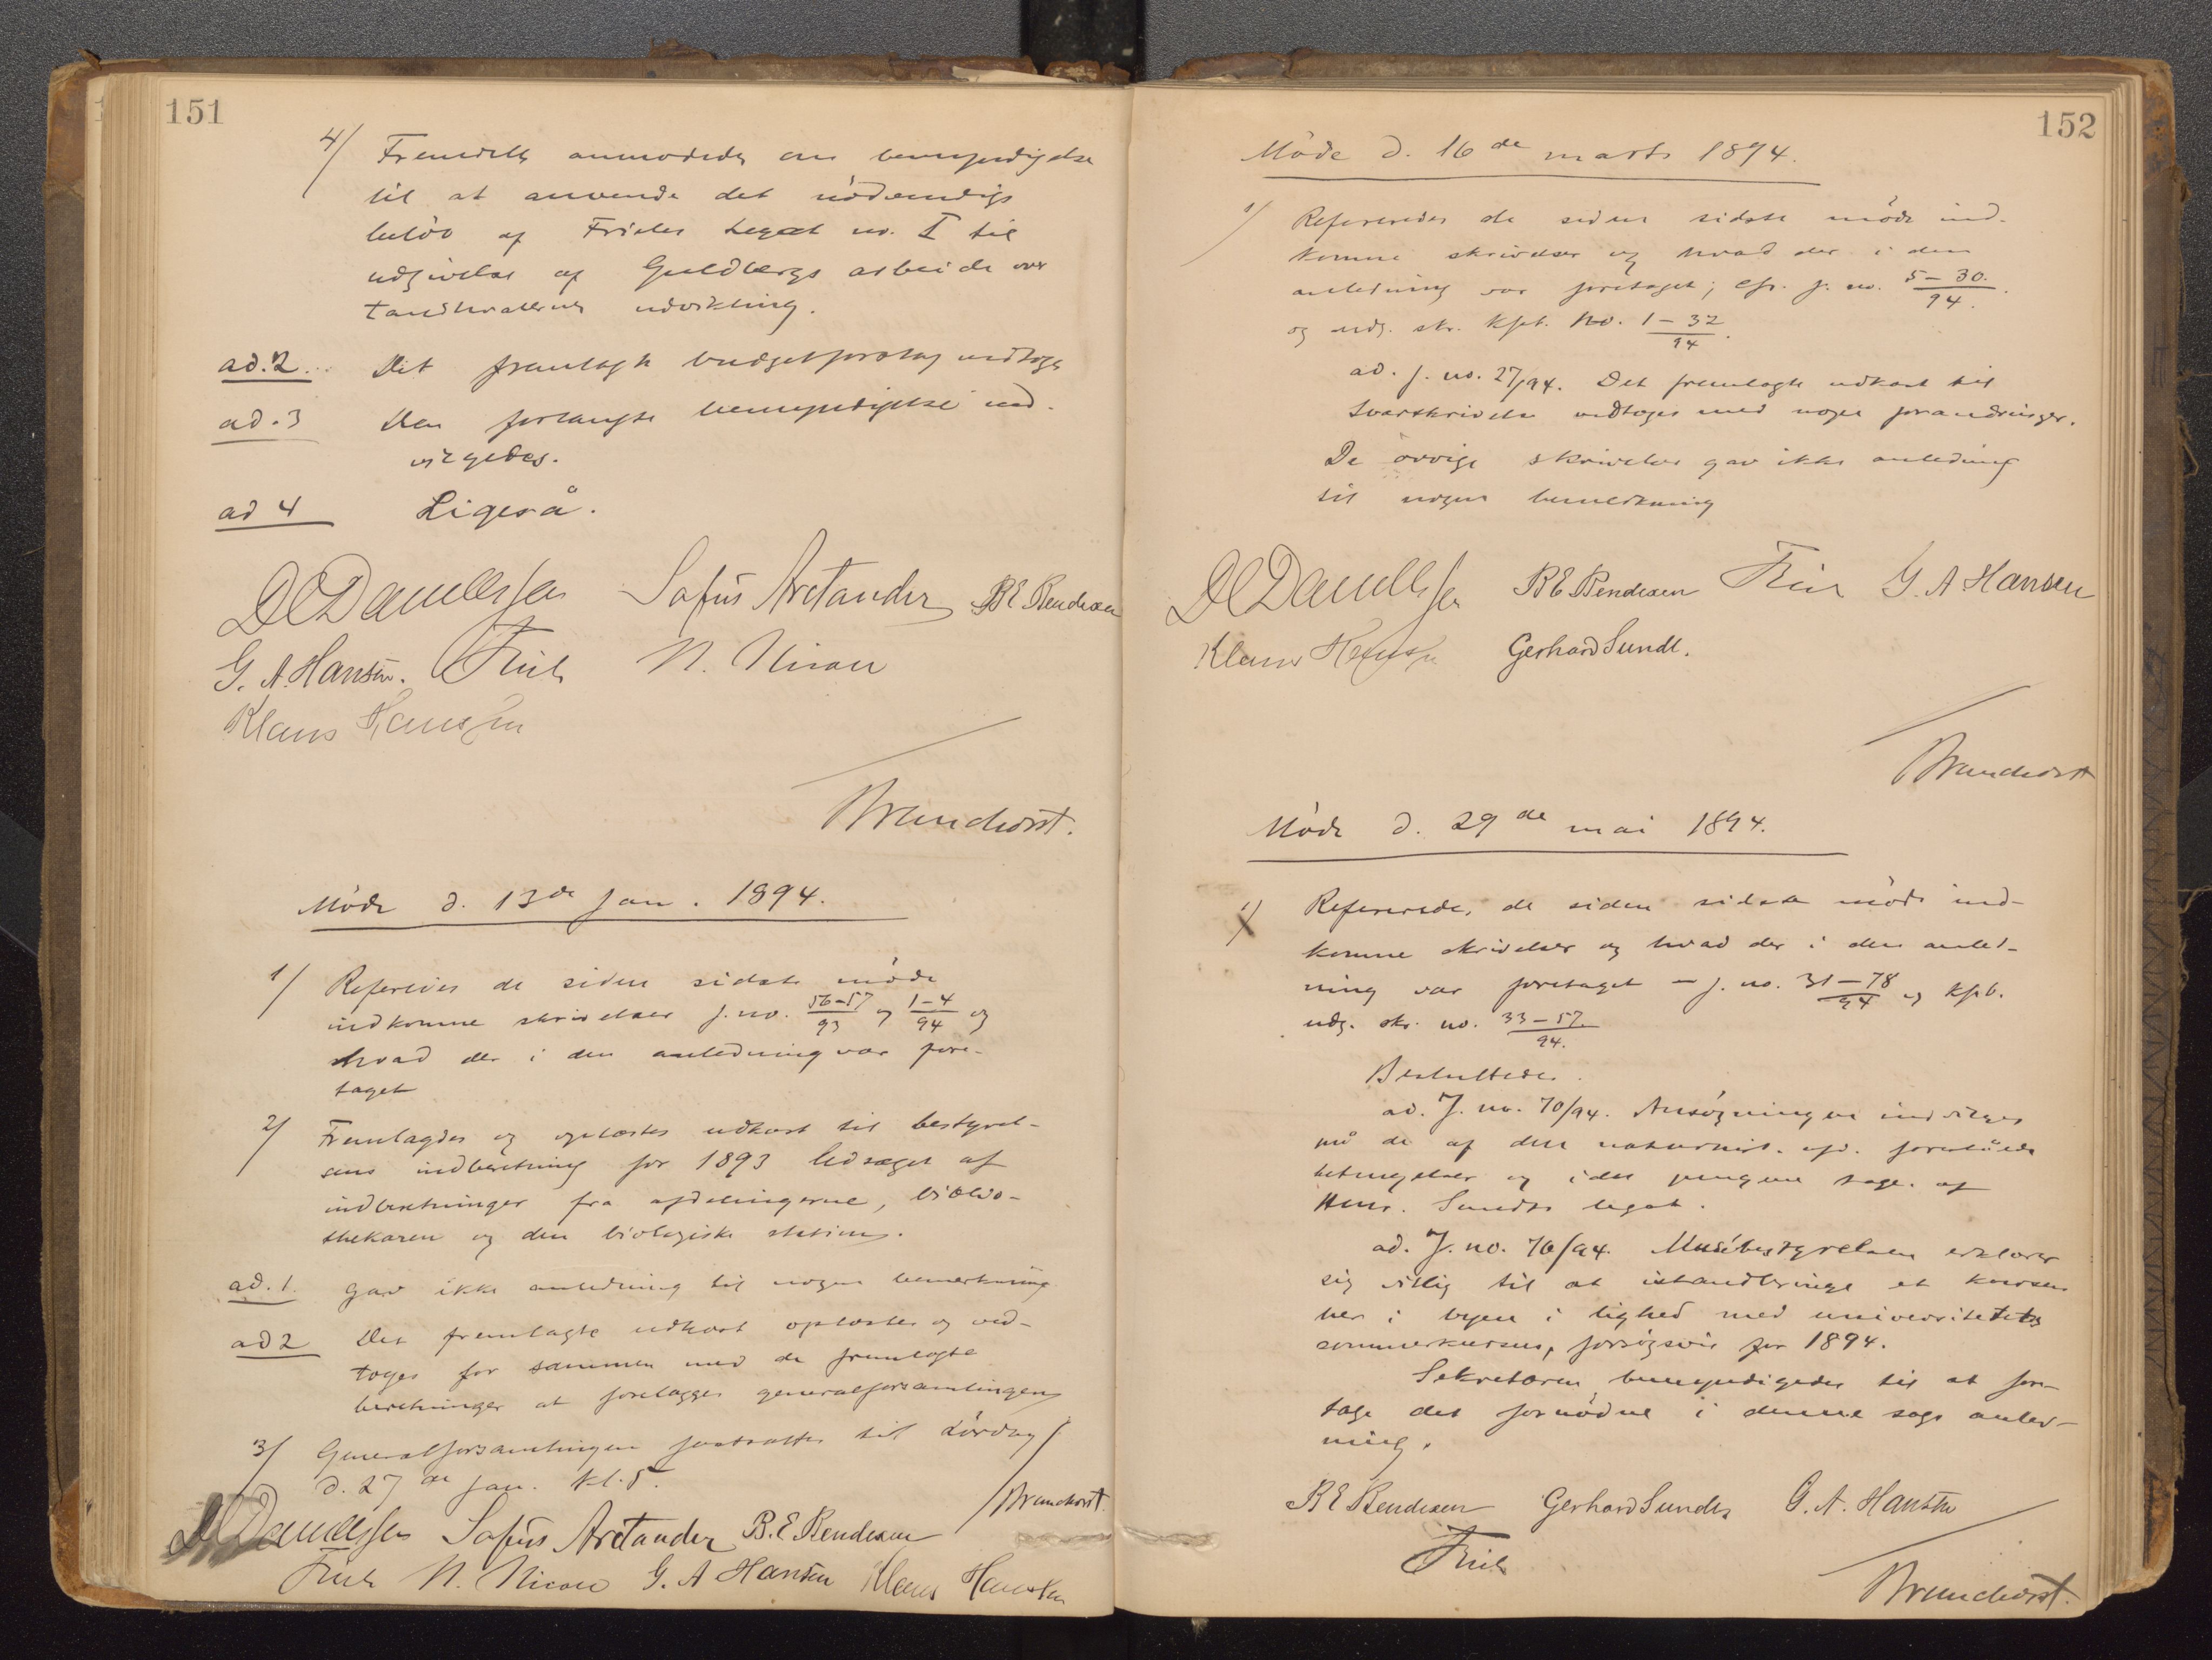 151
4/ Fremdeles anmodedes om bemyndigelse
til at anvende det nödvendige
belöb af Frieles Legat no. I til
udgivelse af Guldbergs arbeide over
tandhvalernes udvikling.
ad. 2. Det fremlagte budgetforslag vedtoges
ad. 3 Den forlangte bemyndigelse ind-
vilgedes.
ad 4 Ligeså.
DC Danielssen Sofus Arctander B E Bendixen
G. A. Hansen. Friele N. Nicon
Klaus Hanssen
Brunchorst.
Möde d. 13de Jan. 1894.
1/ Refereres de siden sidste möde
indkomne skrivelser j. no. 56-57/93 og 1-4/94 og
hvad der i den anledning var fore-
taget
2/ Fremlagdes og oplæstes udkast til bestyrel-
sens indberetning for 1893 ledsaget af
indberetninger fra afdelingerne, biblio-
thekaren og den biologiske station.
ad. 1. Gav ikke anledning til nogen bemerkning
ad 2 Det fremlagte udkast oplæstes og ved-
toges for sammen med de fremlagte
beretninger at forelægges generalforsamlingen
3/ Generalforsamlingen fastsattes til Lördag
d. 27de jan. kl. 5.
/Brunchorst.
DC Danielssen Sofus Arctander B. E. Bendixen
Friele N. Nicon G. A Hansen Klaus Hanssen
152
Möde d. 16de marts 1894.
1/ Refereredes de siden sidste möde ind-
komne skrivelser og hvad der i den
anledning var foretaget; cfr. j. no. 5-30/94.
og udg. skr. kpb. no. 1-32/94.
ad. j. no. 27/94. Det fremlagte udkast til
svarskrivelse vedtoges med nogle forandringer.
De övrige skrivelser gav ikke anledning
til nogen bemerkning
DC Danielssen B E Bendixen Friele G. A Hansen
Klaus Hanssen Gerhard Sundt.
Brunchorst
Möde d. 29de mai 1894.
1/ Refereredes de siden sidste möde ind-
komne skrivelser og hvad der i den anled-
ning var foretaget – j. no. 31-78/94 og kpb.
udg. skr. no. 33-57/94.
Besluttedes.
ad. J. no. 70/94. Ansögningen indvilges
på de af den naturhist. afd. foreslåede
betingelser og idet pengene tages af
Hmr. Sundts legat.
ad. J. no. 76/94. Musébestyrelsen erklærer
sig villig til at istandbringe et kursus
her i byen i lighed med universitetets
sommerkursus, forsögsvis for 1894.
Sekretæren bemyndigedes til at fore-
tage det fornödne i denne sags anled-
ning.
B E Bendixen Gerhard Sundt G. A. Hansen
Friele
Brunchorst.